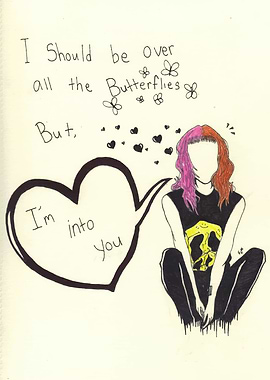 I Should be over
all the Butterflies
But,
I'm into
you